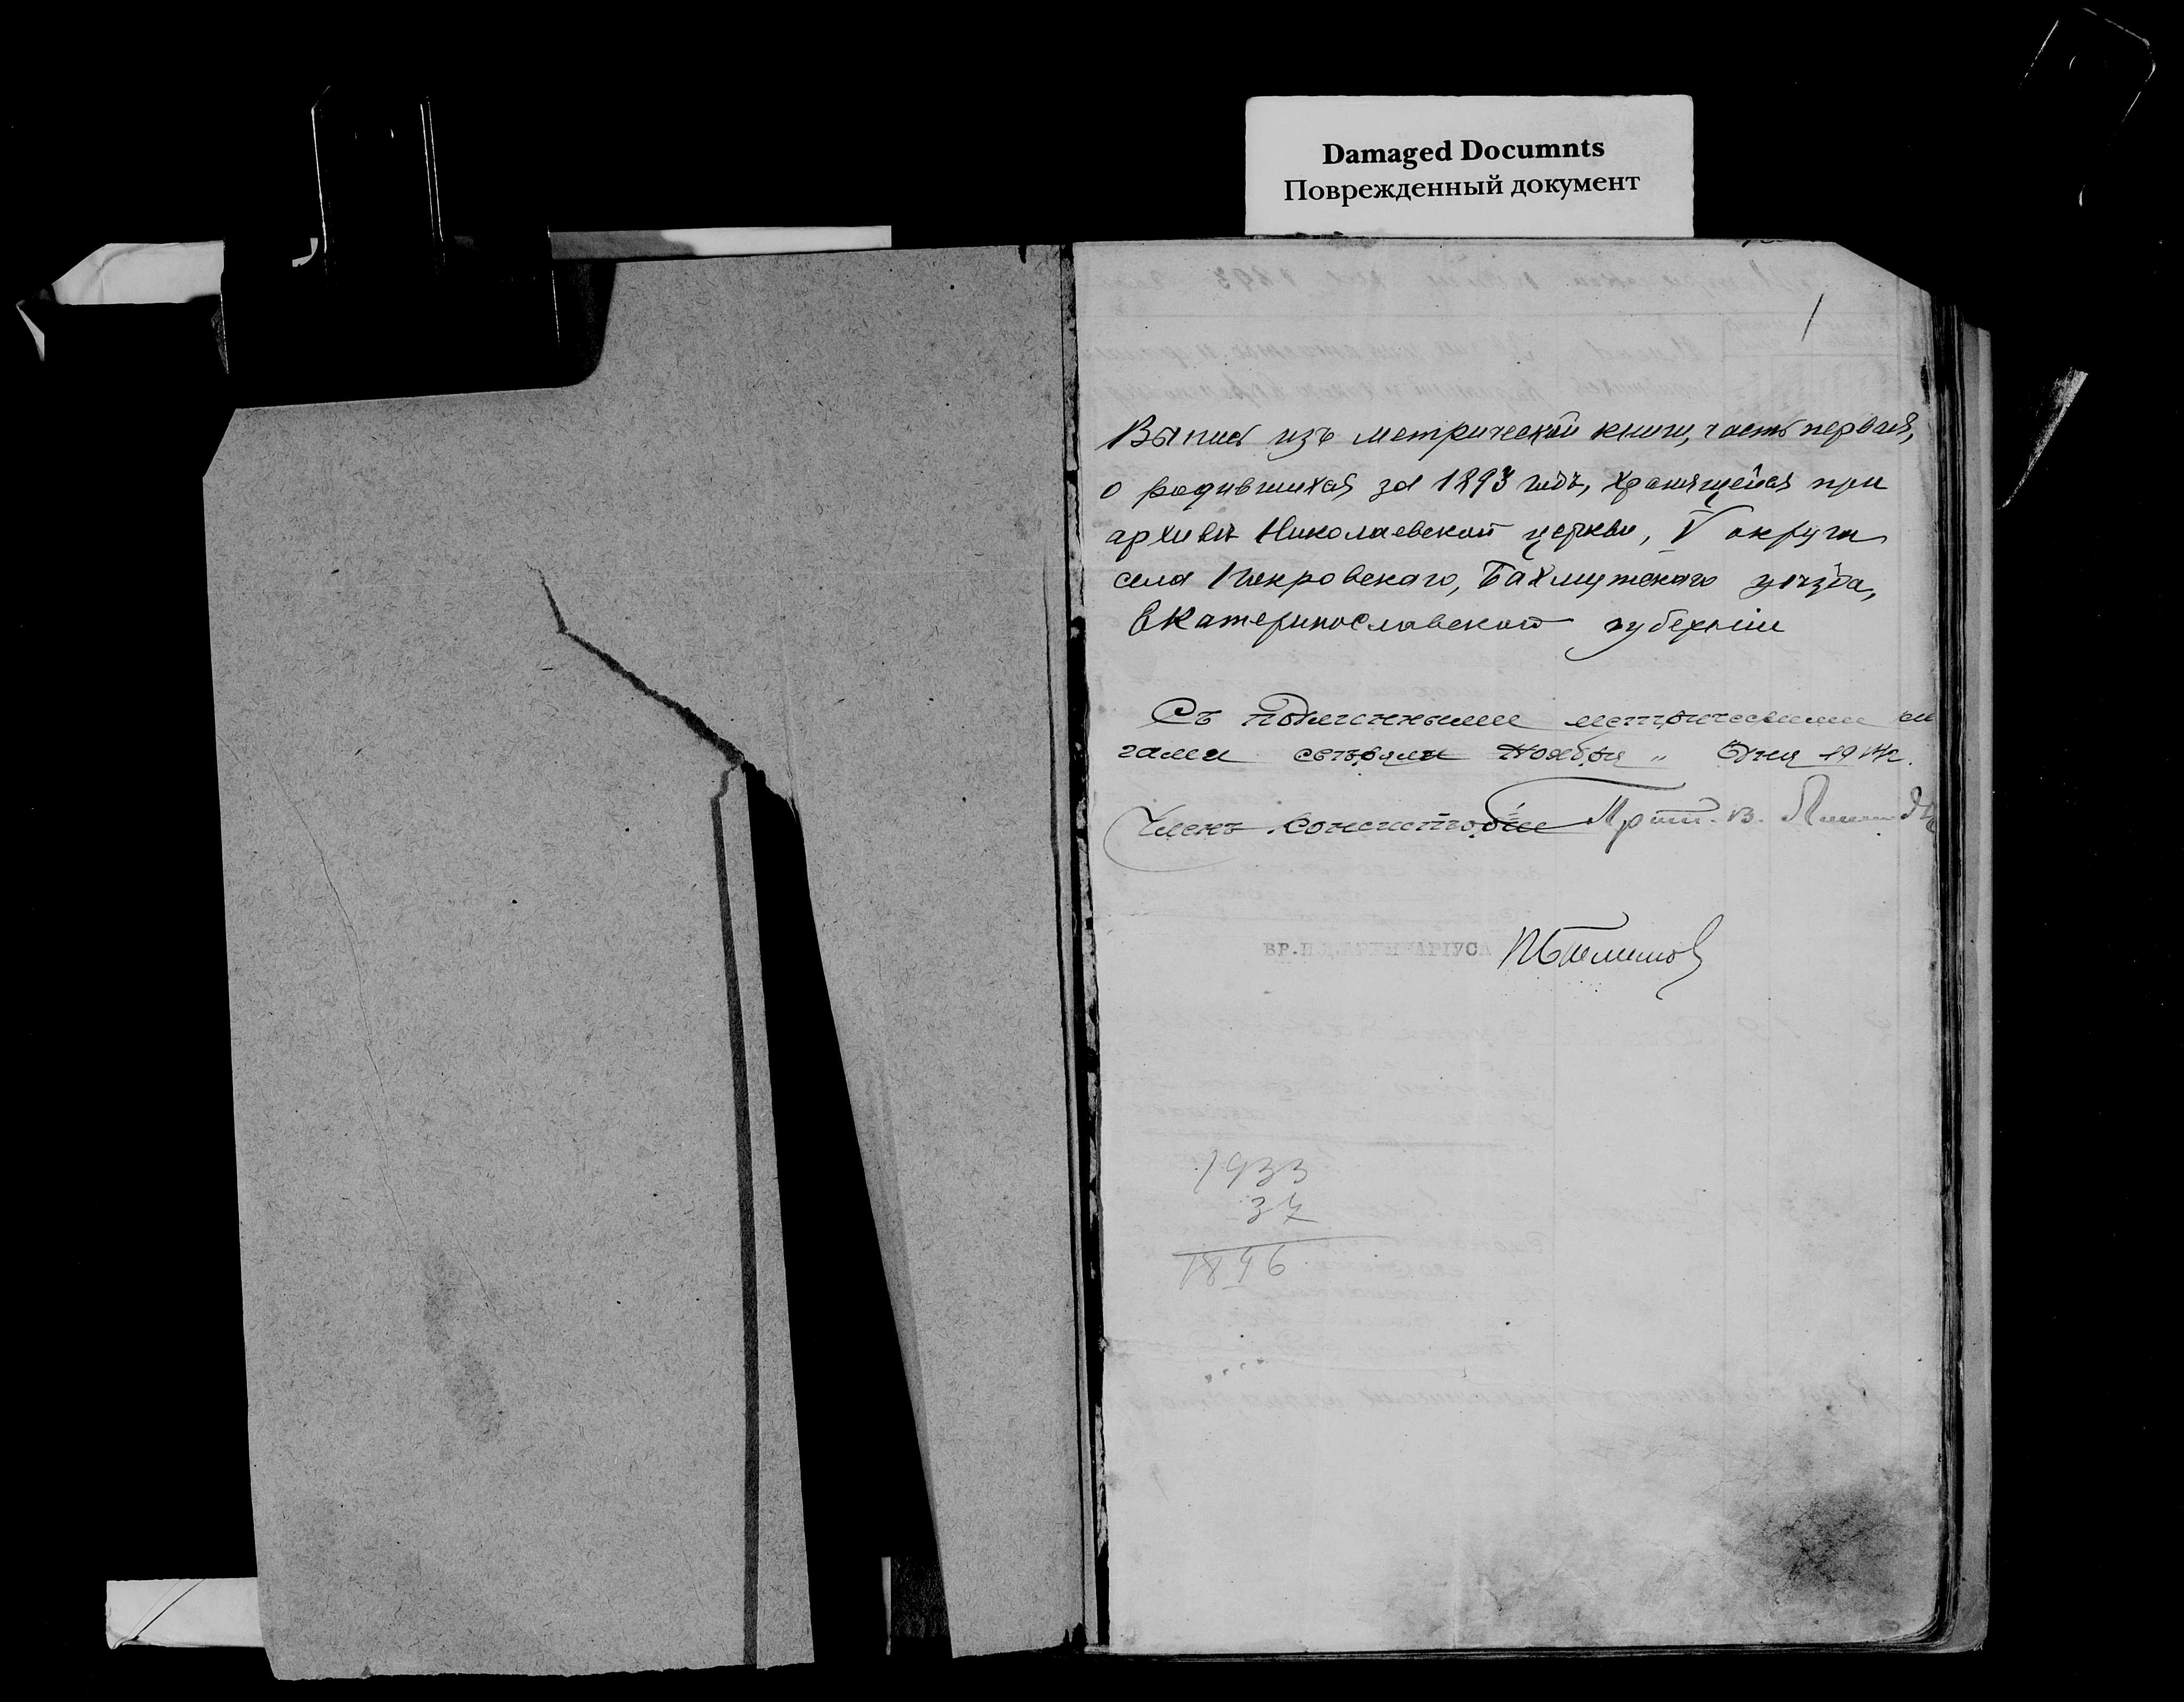 Damaged Documnts
Поврежденный документ
1
Выпись изъ метрической книги, часть первая,
о родившихся за 1893 годъ, хранящейся при
архивѣ Николаевской церкви, V округа
села Покровскаго, Бахмутскаго уѣзда,
Екатеринославской губерніи
Съ подлинными метрическими кни
гами свѣряли Ноября " дня 19
Членъ Консисторіи Прот. В.
ВР.И.Д.АРХИВАРІУСА
1933
37
1896